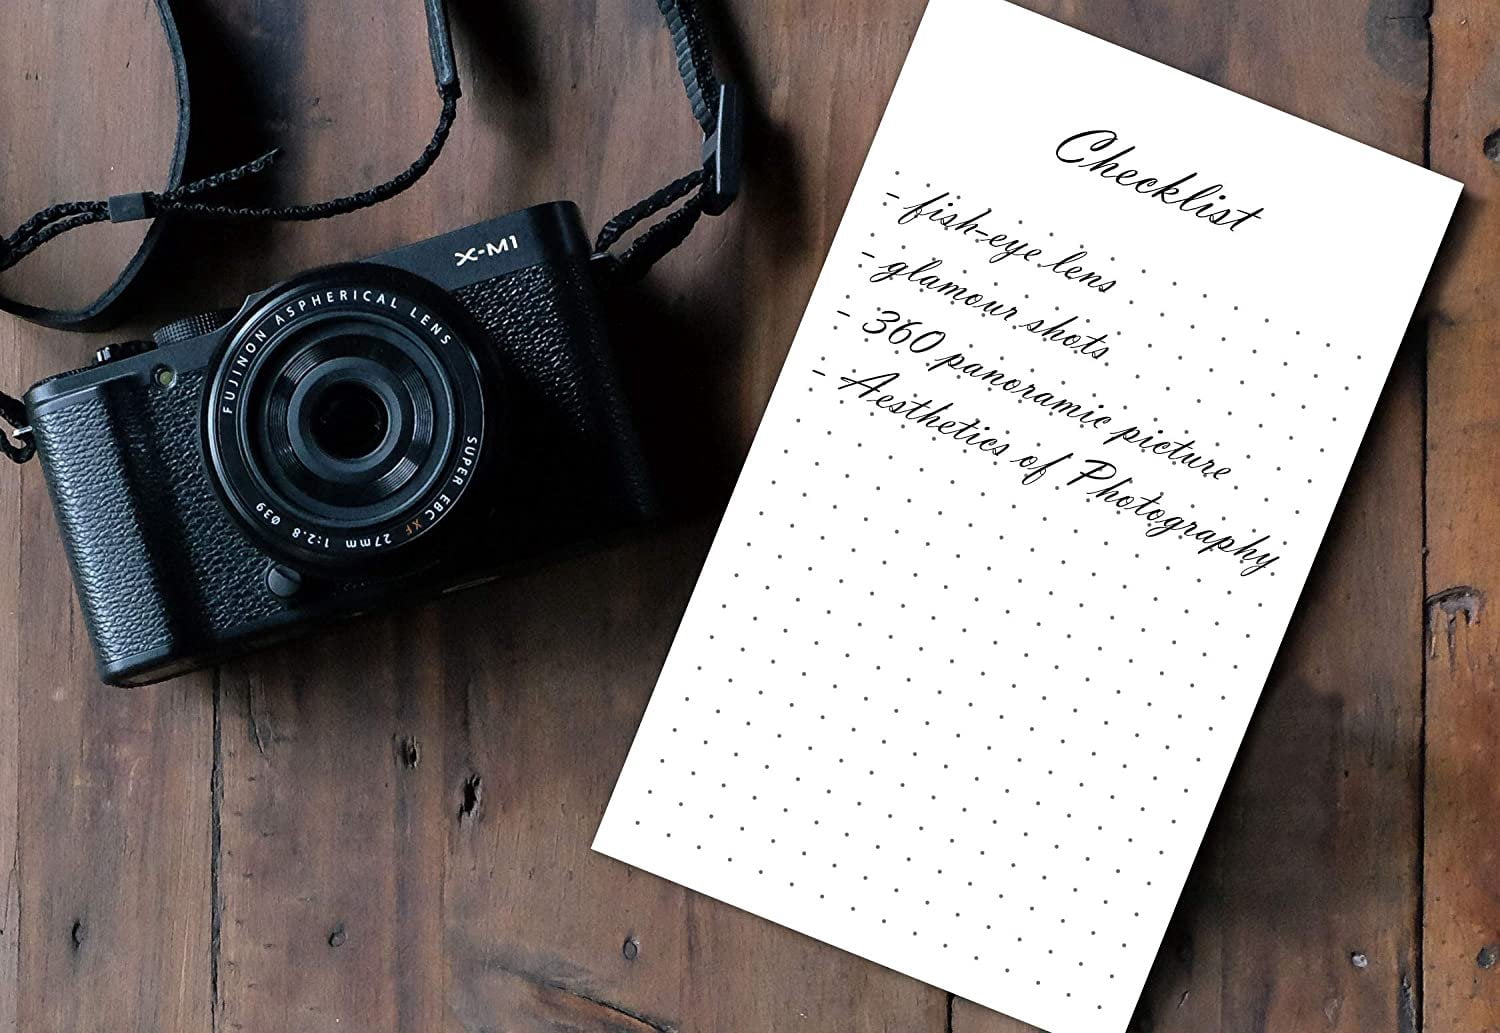 X-M1
FUJINON ASPHERICAL LENS
SUPER EBC XF 27mm 1:2.8 ø39
Checklist
- fish-eye lens
- glamour shots
- 360 panoramic picture
- Aesthetics of Photography